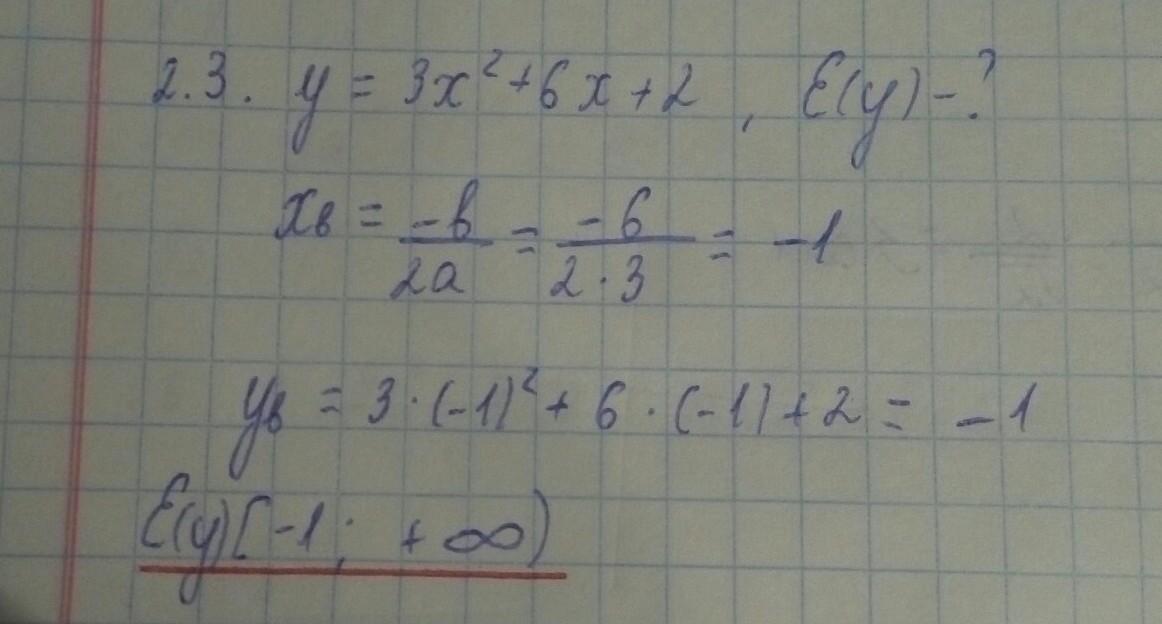 2.3. y = 3x² + 6x + 2, E(y) - ?
xв = -b/2a = -6/2·3 = -1
yв = 3·(-1)² + 6·(-1) + 2 = -1
E(y)[-1; +∞)